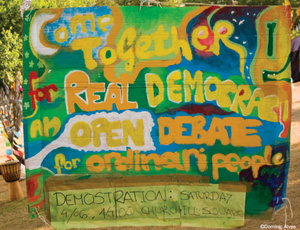 Come
Together !
for REAL DEMOCRACY
AN OPEN DEBATE
for ordinari people
DEMOSTRATION: SATURDAY
4/06. 14:00 CHURCHILL SQUARE
©Dominic Alves